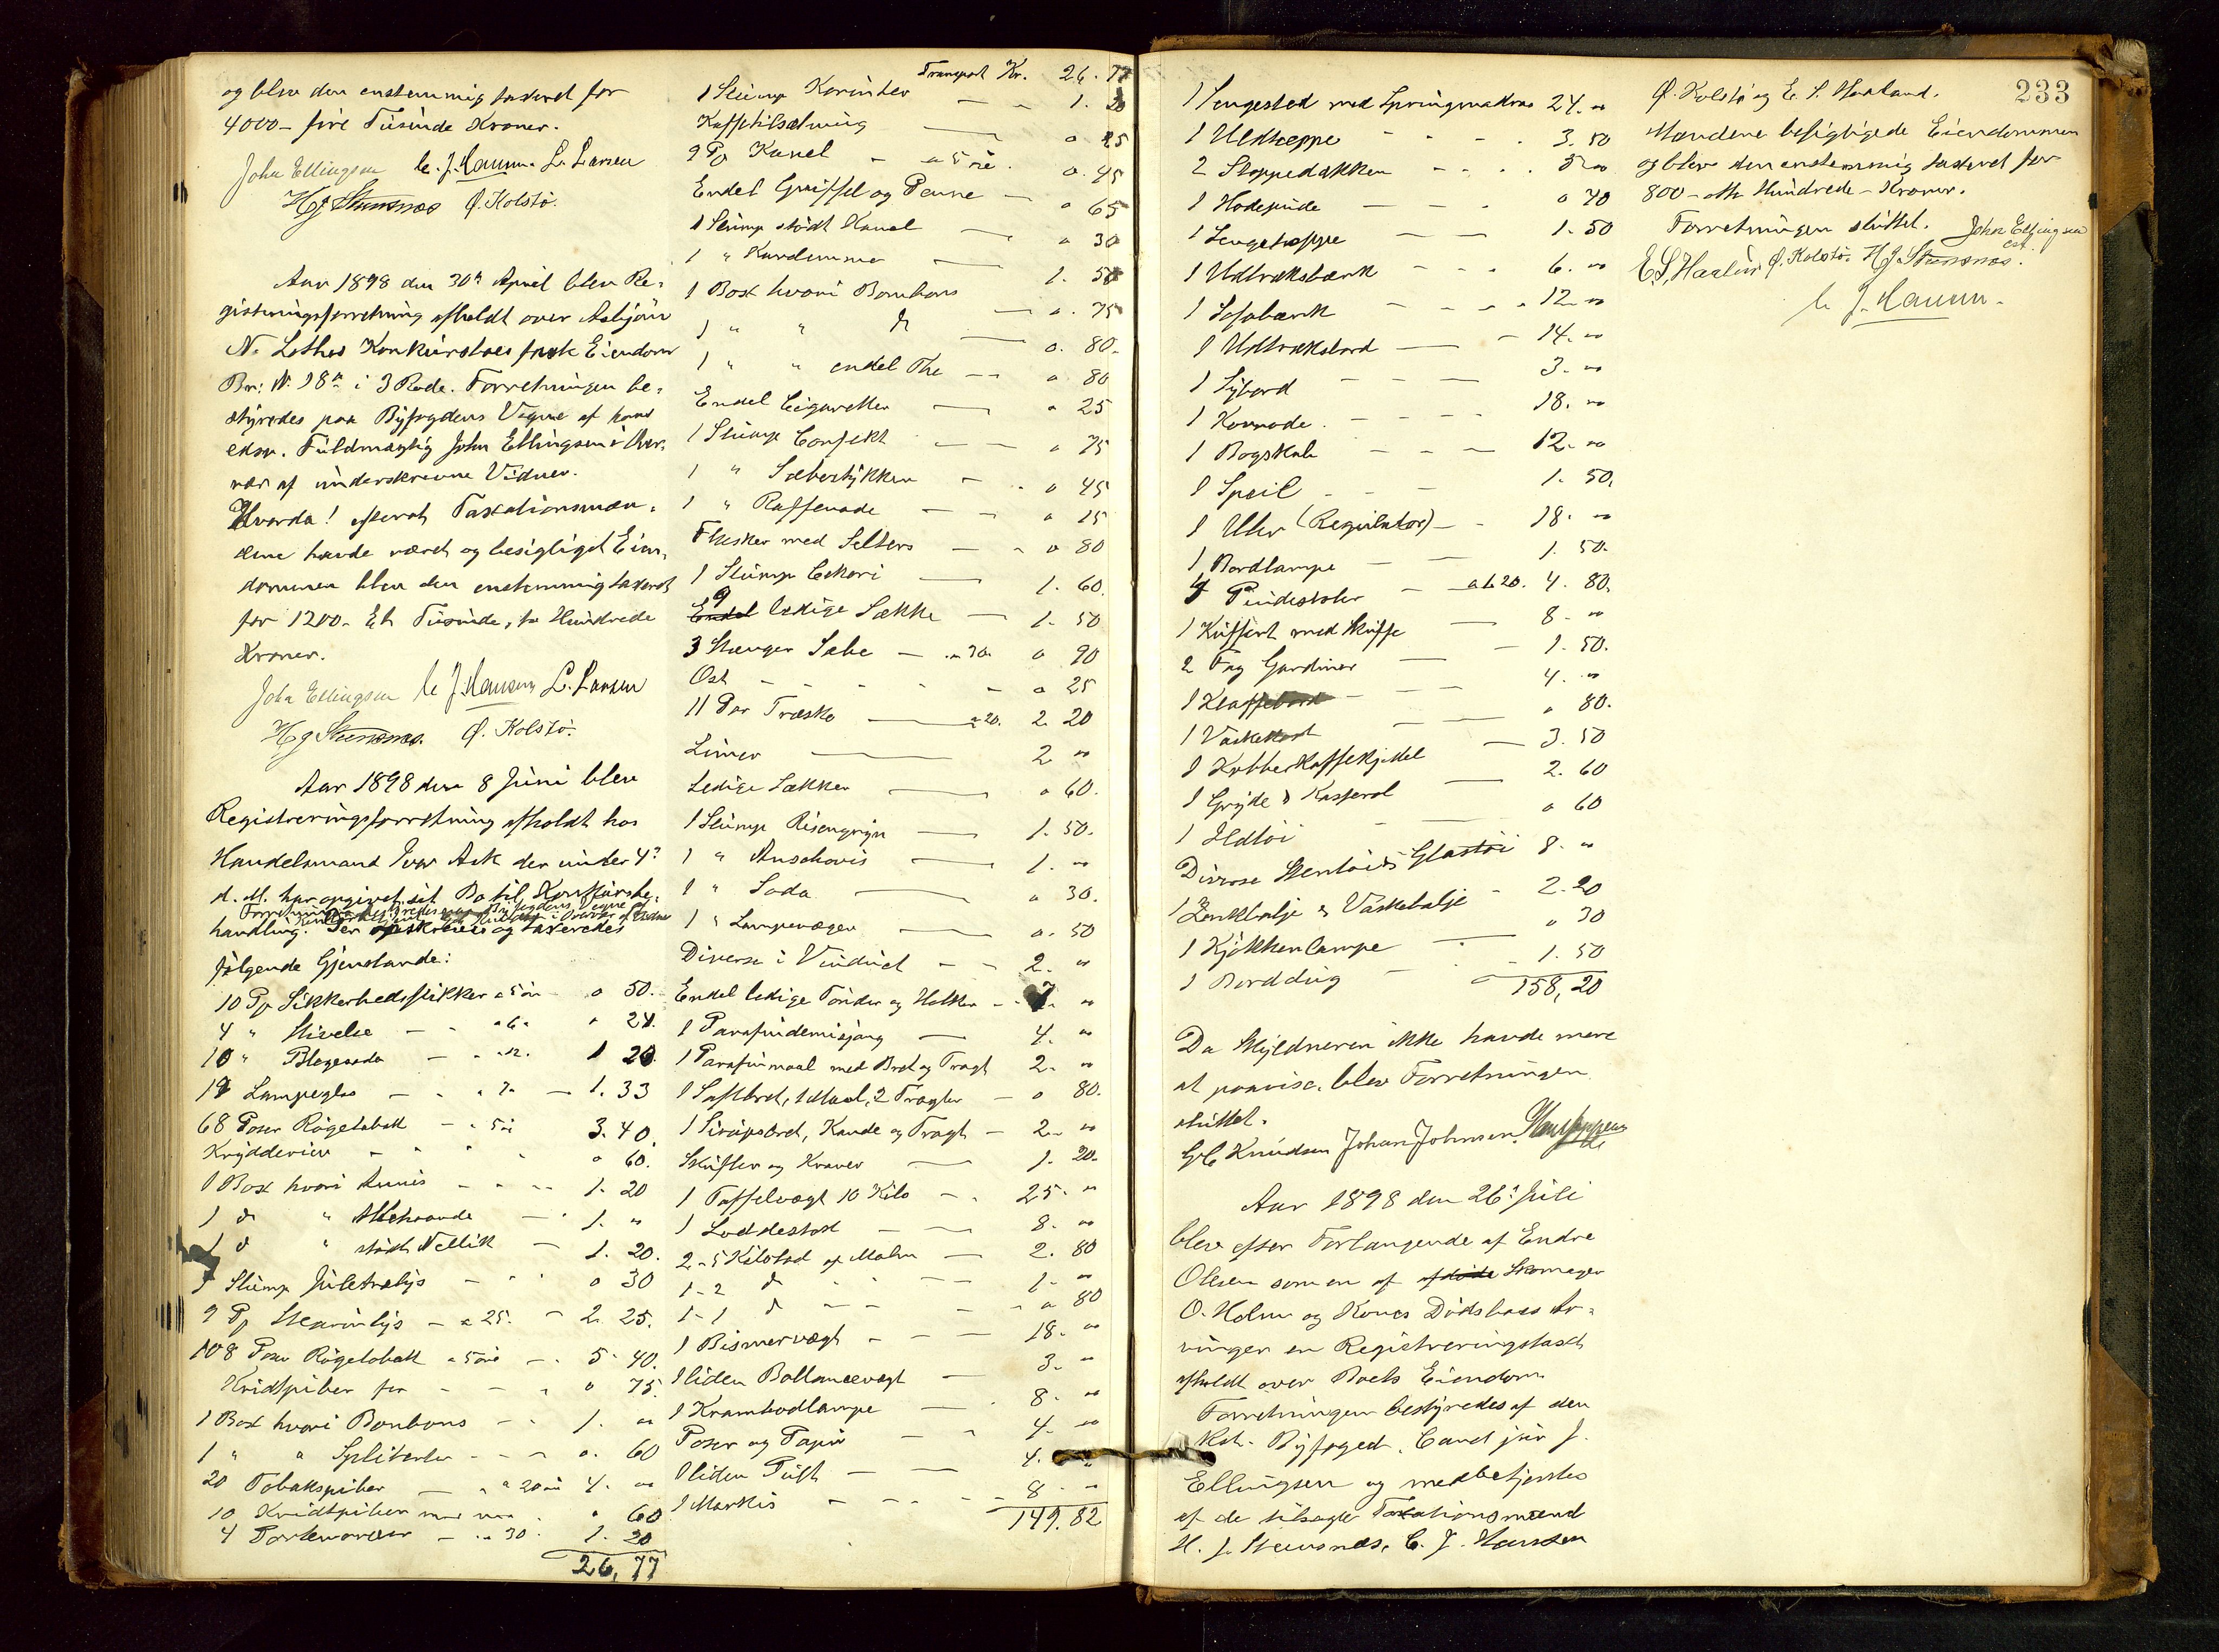 og blev den enstemmig taxeret for
4000 - fire Tusinde Kroner.
John Ellingsen C. J. Hansen L. Larsen
H J Steensnæs Ø. Kolstø.
Aar 1898 den 30te April blev Re-
gistringsforretning afholdt over Asbjørn
N. Lothes Konkursboes faste Eiendom
Br: N. 98a i 3 Rode. Forretningen be-
styredes paa Byfogdens Vegne af hans
edsv. Fuldmægtig John Ellingsen i Over-
vær af underskrevne Vidner.
Hvorda! efterat Taxationsmæn-
dene havde været og besigtiget Eien-
dommen blev den enstemmig taxeret
for 1200 - Et Tusinde, to Hundrede
Kroner.
John Ellingsen C. J. Hansen L. Larsen
H J Steensnæs. Ø. Kolstø.
Aar 1898 den 8 Juni blev
Registreringsforretning afholdt hos
Handelsmand Iver Ask der under 4de
d. M. har opgivet sit Bo til Konkursbe-
Forretningen bestyredes paa Byfogdens Vegne af
handling. Der opskreves og taxeredes
følgende Gjenstande:
10 Pp Sikkerhedsstikker a 5 øre o 50.
4 " Stivelse - - a 6 " 24.
10 " Blegesoda - - a 12. 1 20.
19 Lampeglas - - a 7 - 1. 33
68 Poser Røgetobak - a 5 ø 3. 40.
Krydderier - - - o 60.
1 Box hvori Annis - - - 1. 20
1 do " Allehaande - 1. "
1 do " stødt Nellik - 1. 20.
1 Slump Juletrælys - - o 30
9 Pp Stearinlys - a 25. - 2. 25.
108 Poser Røgetobak a 5 øre - 5. 40.
Kridtpiber for - - - o 75.
1 Box hvori Bonbons - - 1. "
1 " " Spliterter - - - o. 60
20 Tobakspiber - a 20 ø 4. "
10 Kridtpiber med mere . o 60
4 Portemonæer - a 30. 1. 20
26,77
Transport Kr. 26.77
1 Slump Korinter - - 1. 20
Kaffetilsætning - o 25
9 Pp Kanel - a 5 øre. o. 45
Endel Griffel og Penne - o 65
1 Slump stødt Kanel - o 30
1 " Kardemme - 1. 50
1 Box hvori Bonbons - o. 75
1 " " do - o. 80.
1 " " endel The - - o 80
Endel Cigaretter - o 25
1 Slump Confekt - - o 75
1 " Sæbestykker - - o 45
1 " Raffenade - - o 25
Flasker med Selters - - o 80
1 Slump Cekori - 1. 60.
9 ledige Sække - 1. 50
3 Stænger Sæbe - a 30. o 90
Ost - - - - o 25
11 Par Træsko - a 20. 2. 20
Limer - 2 "
Ledige Sækker - o 60.
1 Slump Risengryn - 1. 50.
1 " Anschovis - 1. "
1 " Soda - o 30.
1 " Lampevæger - o. 50
Diverse i Vinduet - - 2. "
Endel ledige Tønder og Halker - - 7. "
1 Parafindemisjang - 4. "
1 Parafinmaal med Bret og Tragt 2. "
1 Saftbret, 1 Maal, 2 Tragter - o 80.
1 Sirupsbret, Kande og Tragt - 2. "
Skuffer og Kraner - 1. 20.
1 Taffelvægt 10 Kilo - - 25. "
1 Loddestok - - 8. "
2 - 5 Kilolod af Malm - 2. 80
1 - 2 do - - - 1. "
1 - 1 do - - - - o 80
1 Bismervægt - - - 18. "
1 liden Ballancevægt - 3. "
1 Krambodlampe - . 8. "
Poser og Papir - - 4. "
1 liden Pult - - 4. "
1 Markis - - - - 8 "
149.82
233
1 Sengested med Springmadras 24. "
1 Uldteppe - - - 3. 50
2 Stoppedækken - - - 5 "
1 Hodepude - - - o 70
1 Sengeteppe - - 1. 50
1 Udtræksbænk - - - 6. "
1 Sofabænk - - - - 12. "
1 Udtræksbord - - 14. "
1 Sybord - - - 3. "
1 Komode - - - - 18. "
1 Bogskab - - - 12. "
1 Speil - - - 1. 50.
1 Uhr (Regulator) - - 18. "
1 Bordlampe - - 1. 50.
4 Pindestoler - a 1.20. 4. 80.
1 Kuffert med Skuffe - 8. "
2 Fag Gardiner - - 1. 50.
1 Klaffebord - - 4. "
1 - - o 80.
1 Kobberkaffekjedel - 3. 50
1 Gryde & Kasserol - 2. 60
1 Ildtøi - - o 60
Diverse Stentøi & Glastøi 8. "
1 Zinkbalje & Vaskebalje - 2. 20
1 Kjøkkenlampe - . o 30
1 Borddug - - 1. 50
158,20
Da Skyldneren ikke havde mere
at paavise, blev Forretningen
sluttet.
G C Knudsen Johan Johnsen
Aar 1898 den 26de Juli
blev efter Forlangende af Endre
Olsen som en af afdøde Skomager
O. Holm og Kones Dødsboes Ar-
vinger en Registreringstaxt
afholdt over Boets Eiendom
Forretningen bestyredes af den
Kst. Byfoged, Cand jur J.
Ellingsen og medbetjentes
af de tilsagte Taxationsmænd
H. J. Steensnæs, C. J. Hansen
Ø. Kolstø og E. S. Haaland.
Mændene besigtigede Eiendommen
og blev den enstemmig taxeret for
800 - otte Hundrede - Kroner.
Forretningen sluttet. John Ellingsen
cst.
E S Haaland Ø. Kolstø. H J Steensnæs.
C J. Hansen.